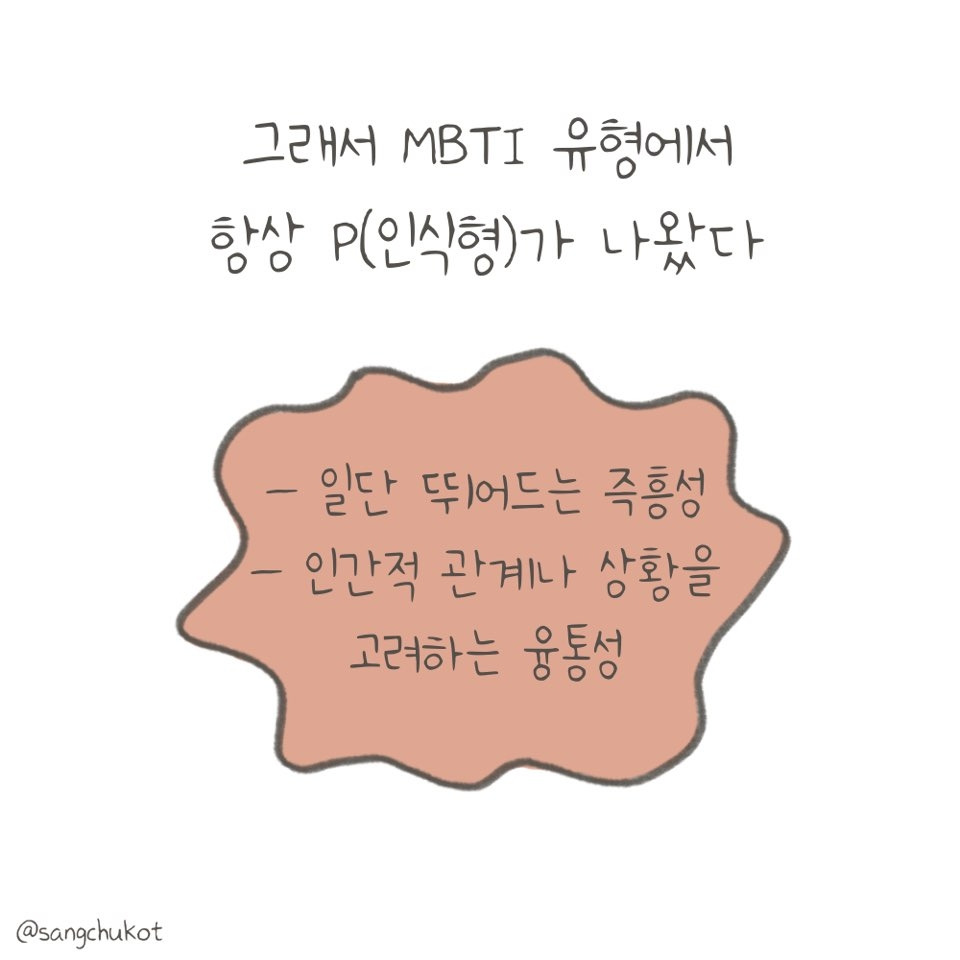 그래서 MBTI 유형에서
항상 P(인식형)가 나왔다
- 일단 뛰어드는 즉흥성
- 인간적 관계나 상황을
고려하는 융통성
@sangchukot